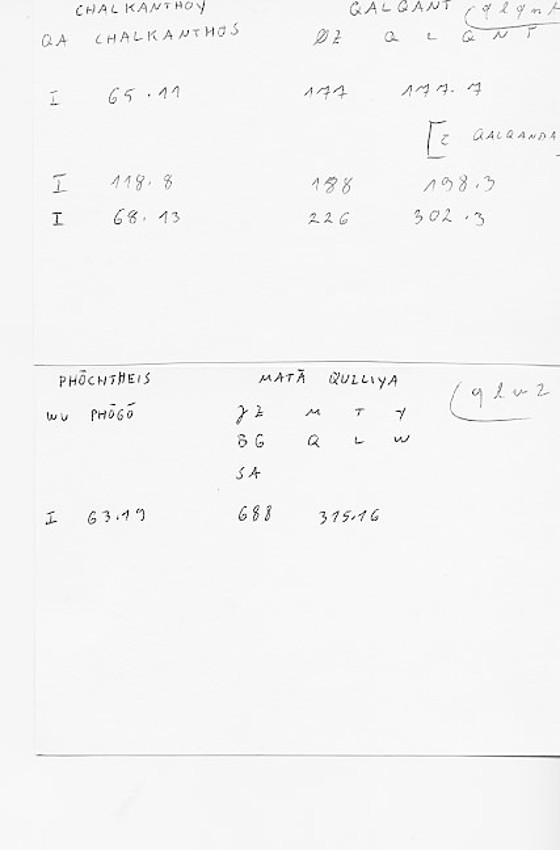 CHALKANTHOY QALQANT (qlqnt
QA CHALKANTHOS ØZ Q L Q N T
I 65.11 177 177.7
[Z QALQANDA
I 118.8 188 198.3
I 68.13 226 302.3
PHŌCHTHEIS MATĀ QULLIYA (qlw2
WU PHŌGŌ γZ M T Y
BG Q L W
SA
I 63.19 688 315.16